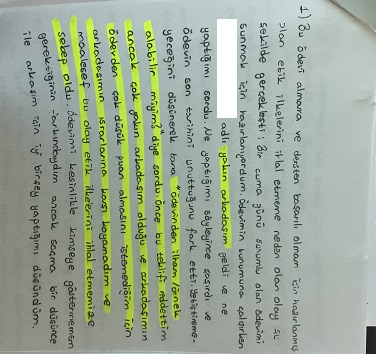 1) Bu ödevi almama ve dersten başarılı olmam için hazırlanmış
olan etik ilkelerini ihlal etmeme neden olan olay şu
şekilde gerçekleşti: Bir cuma günü sunumlu olan ödevimi
sunmak için hazırlanıyordum. Ödevimin sunumuna çalışırken
adlı yakın arkadaşım geldi ve ne
yaptığımı sordu. Ne yaptığımı söyleyince şaşırdı ve
ödevin son tarihini unuttuğunu fark etti. Yetiştireme-
yeceğini düşünerek bana "ödevinden ilham/örnek
alabilir miyim?" diye sordu. Önce bu teklifi reddettim
ancak çok yakın arkadaşım olduğu ve arkadaşımın
ödevden çok düşük puan almasını istemediğim için
arkadaşımın ısrarlarına karşı koyamadım ve
maalesef bu olay etik ilkelerini ihlal etmemize
sebep oldu. Ödevimi kesinlikle kimseye göstermemem
gerektiğinin farkındaydım ancak saçma bir düşünce
ile arkadaşım için iyi birşey yaptığımı düşündüm.